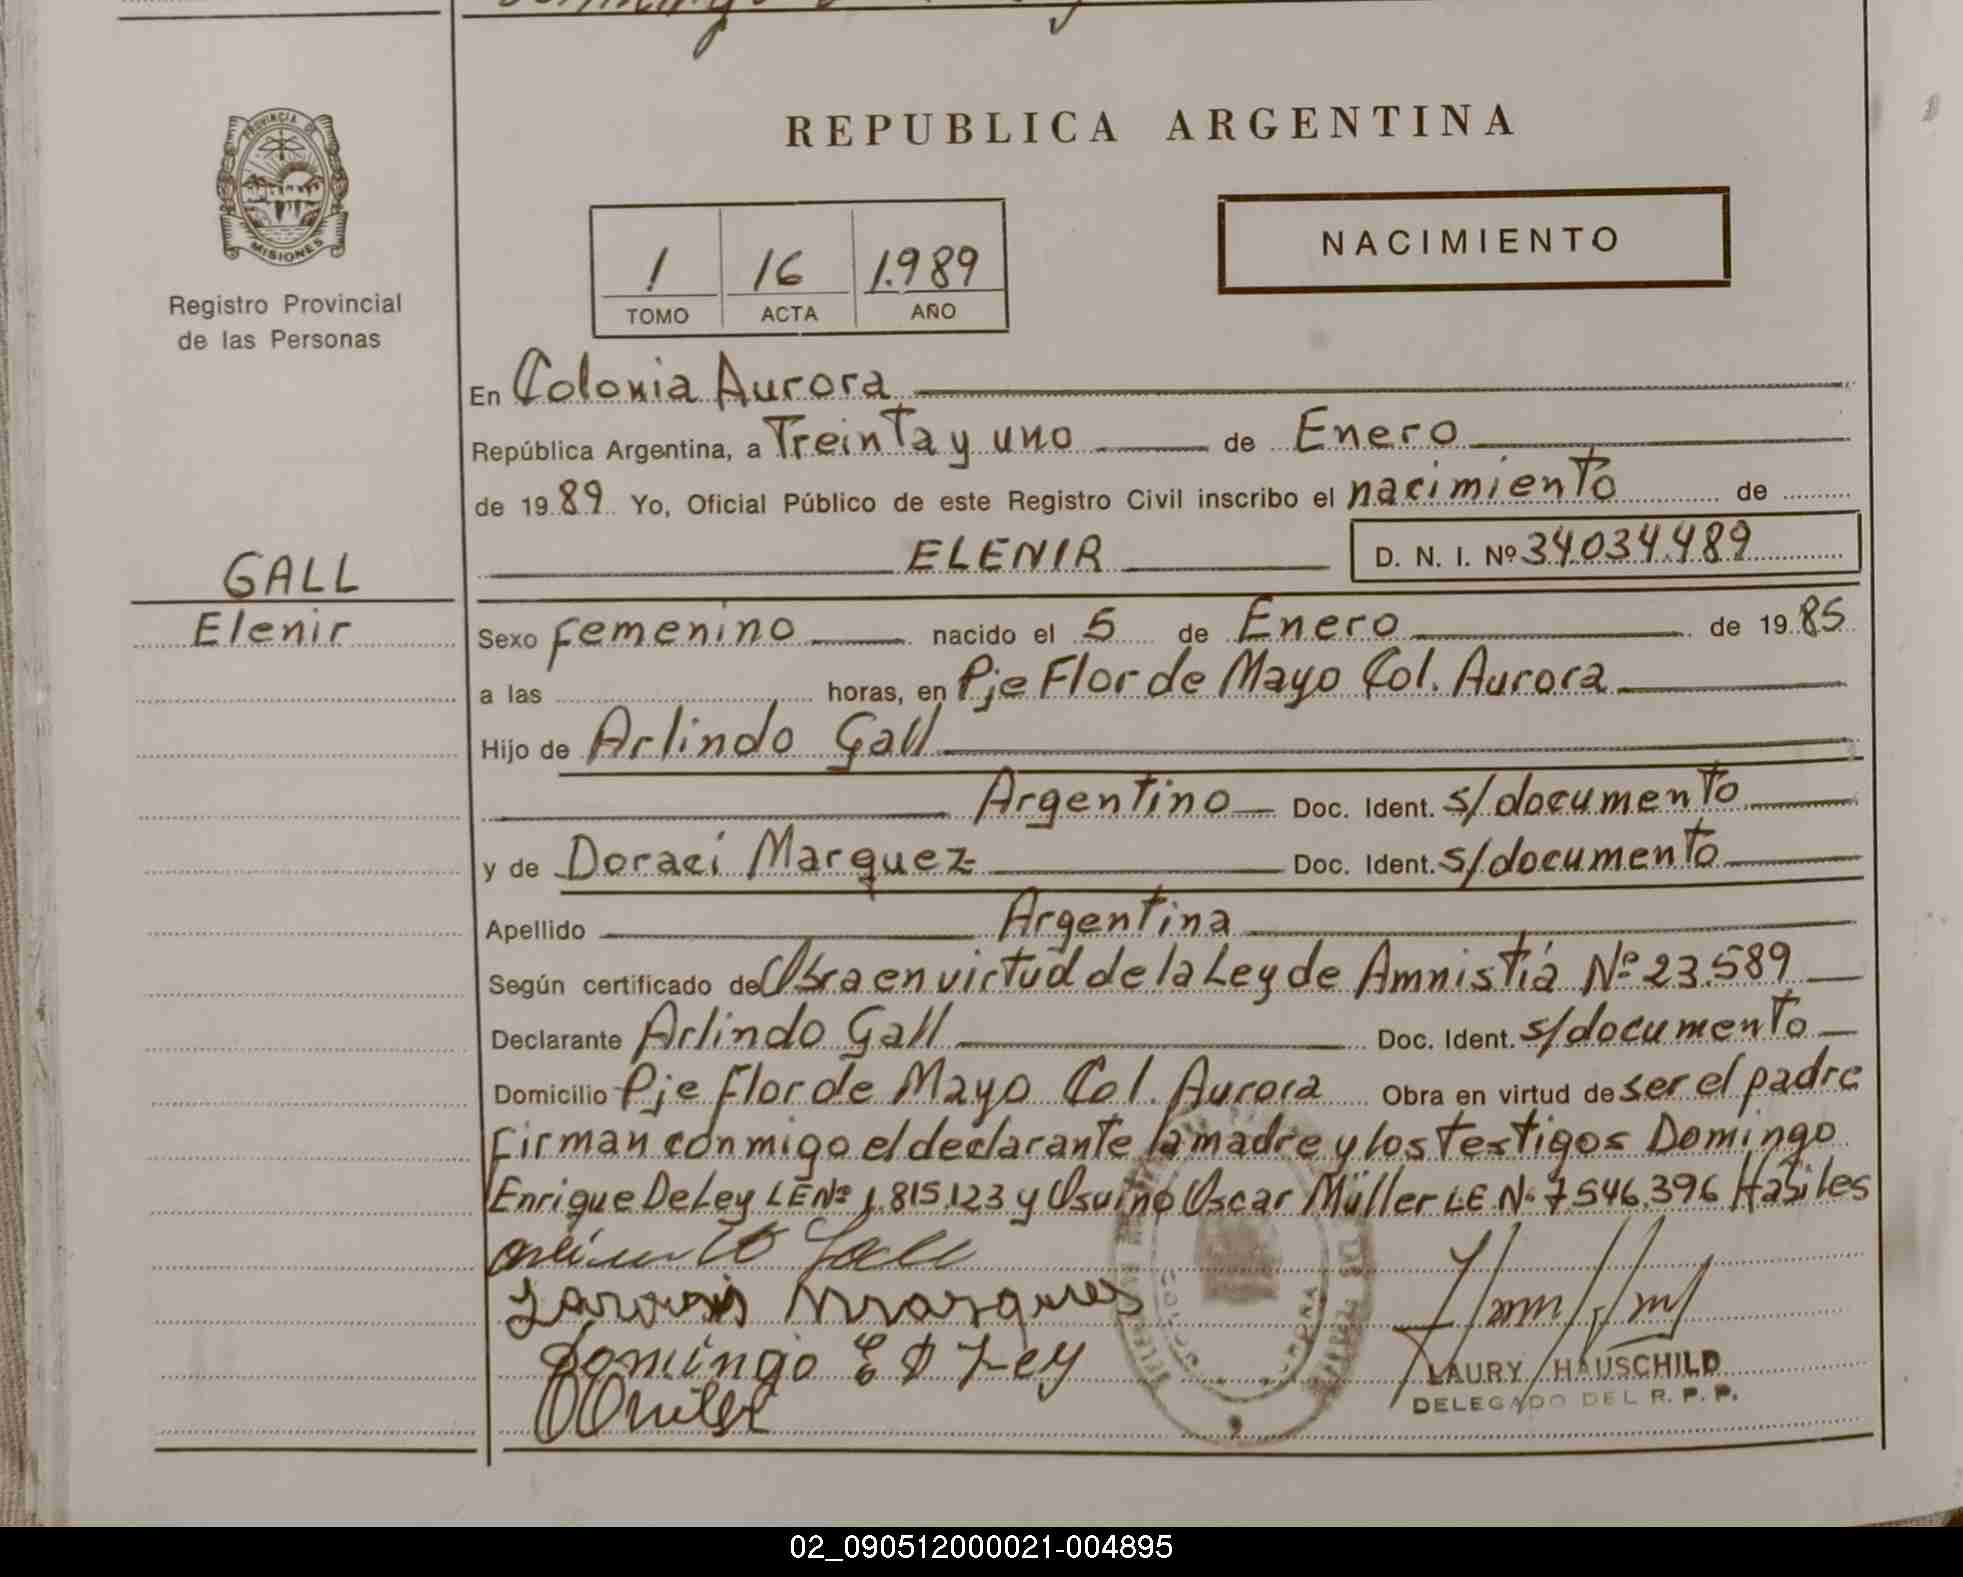 PROVINCIA DE
MISIONES
Registro Provincial
de las Personas
REPUBLICA ARGENTINA
1 16 1.989
TOMO ACTA AÑO
NACIMIENTO
En Colonia Aurora
República Argentina, a Treinta y uno de Enero
de 1989 Yo, Oficial Público de este Registro Civil inscribo el nacimiento de
ELENIR D. N. I. Nº 34.034.489
GALL
Elenir
Sexo femenino nacido el 5 de Enero de 1985
a las horas, en Pje Flor de Mayo Col. Aurora
Hijo de Arlindo Gall
Argentino Doc. Ident. s/documento
y de Doraci Marquez Doc. Ident. s/documento
Apellido Argentina
Según certificado de Obra en virtud de la Ley de Amnistía Nº 23.589
Declarante Arlindo Gall Doc. Ident. s/documento
Domicilio Pje Flor de Mayo Col. Aurora Obra en virtud de ser el padre
Firman conmigo el declarante la madre y los testigos Domingo
Enrique De Ley LE Nº 1.815.123 y Osvino Oscar Müller LE Nº 7.546.396 Habiles
Gall
Marques
Domingo E D Ley
LAURY HAUSCHILD
DELEGADO DEL R. P. P.
02_090512000021-004895